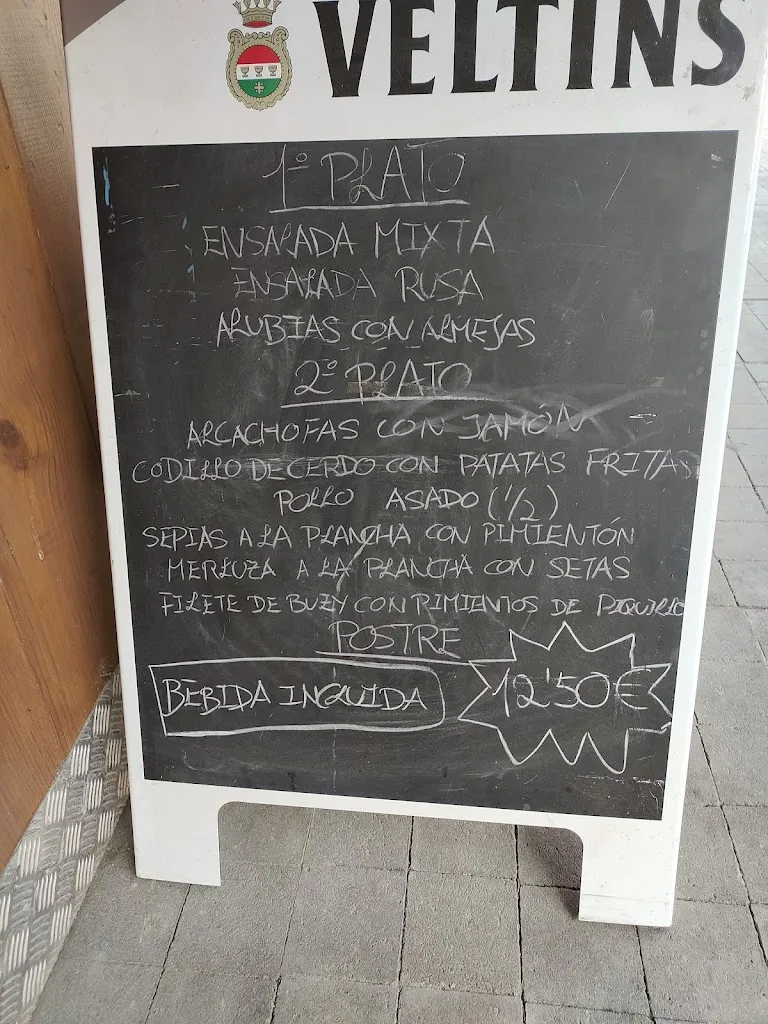 VELTINS
1º PLATO
ENSALADA MIXTA
ENSALADA RUSA
ALUBIAS CON ALMEJAS
2º PLATO
ALCACHOFAS CON JAMÓN
CODILLO DE CERDO CON PATATAS FRITAS
POLLO ASADO (1/2)
SEPIAS A LA PLANCHA CON PIMIENTÓN
MERLUZA A LA PLANCHA CON SETAS
FILETE DE BUEY CON PIMIENTOS DE PIQUILLO
POSTRE
BEBIDA INQLUIDA
12'50€